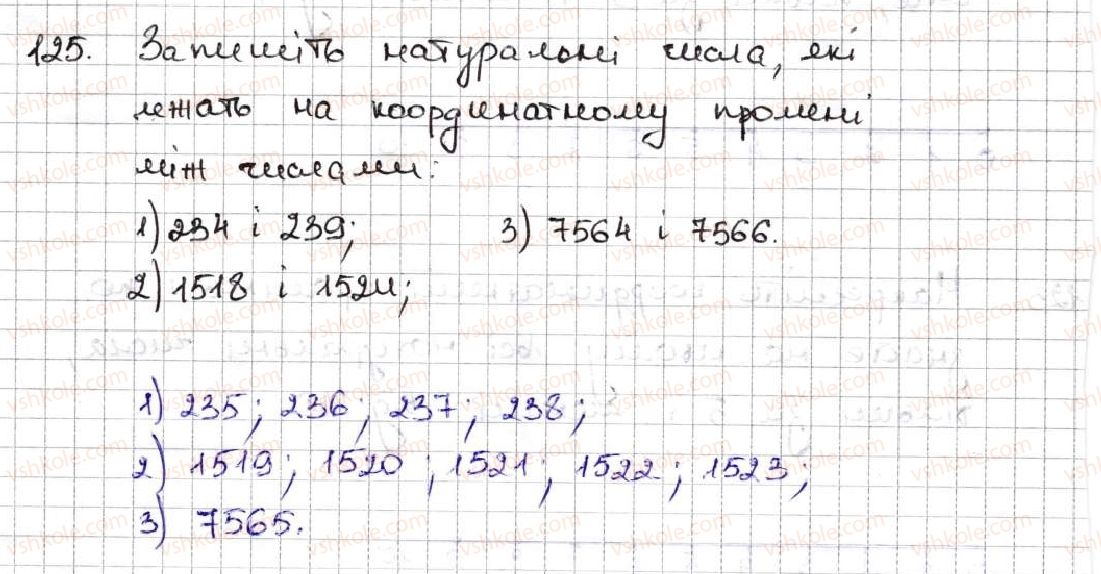 125. Запишіть натуральні числа, які
лежать на координатному промені
між числами:
1) 234 і 239; 3) 7564 і 7566.
2) 1518 і 1524;
1) 235; 236; 237; 238;
2) 1519; 1520; 1521; 1522; 1523;
3) 7565.